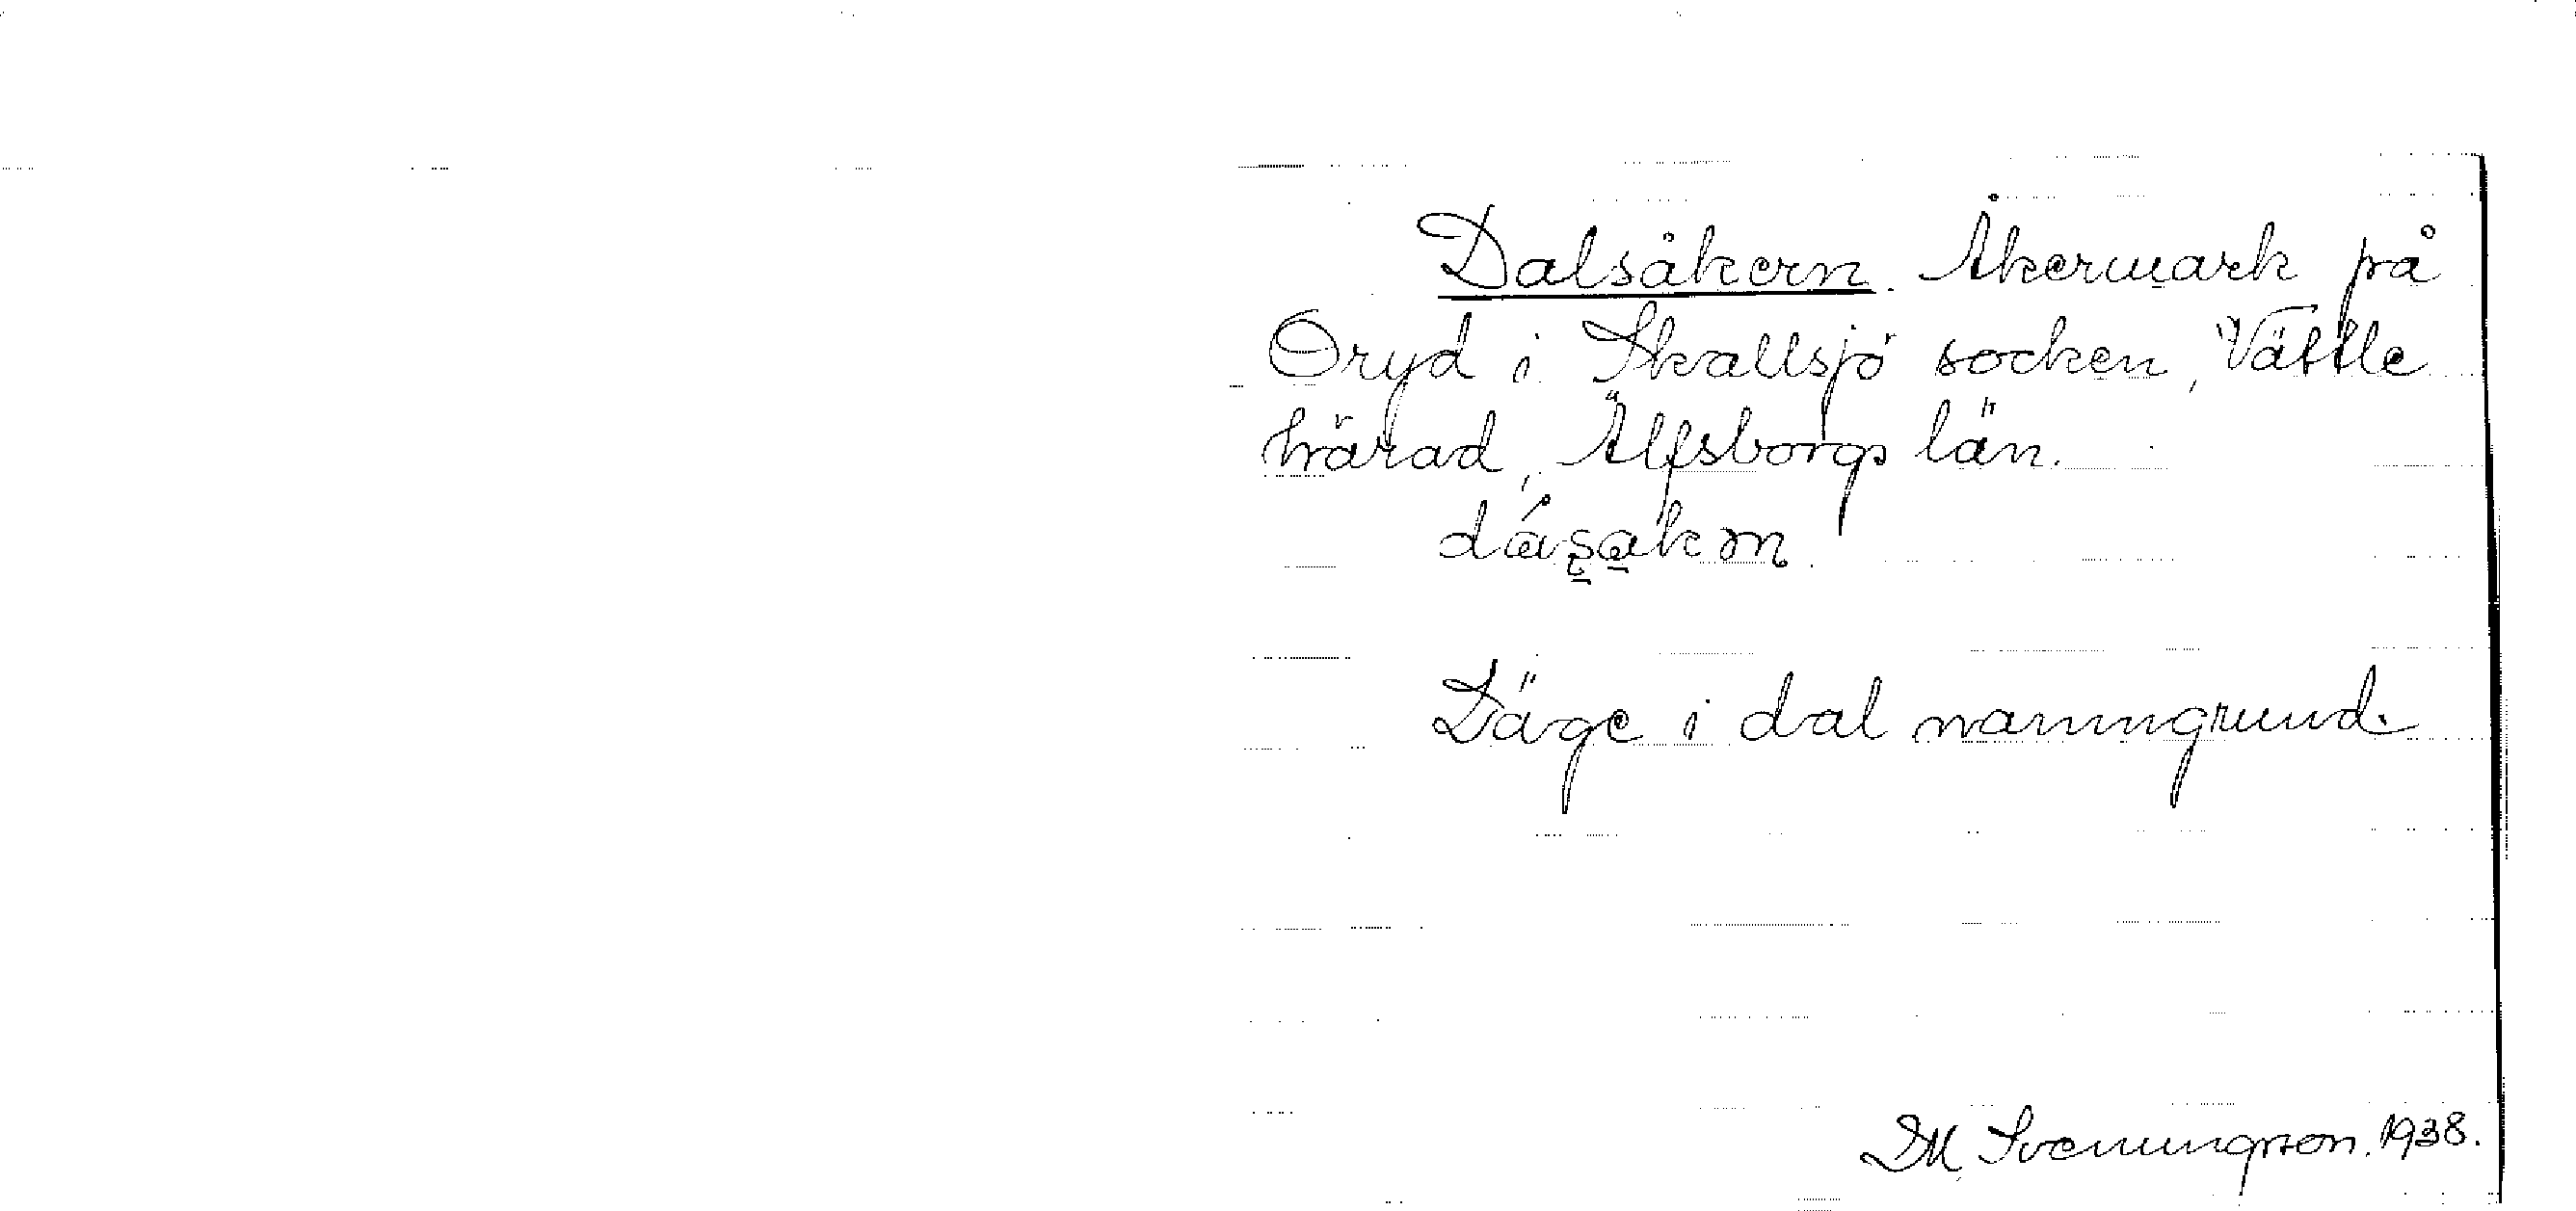 Dalsåkern. Åkermark på
Öryd i Skallsjö socken, Vättle
härad, Älfsborgs län.
Läge i dal namngrund.
Svenungsson. 1938.